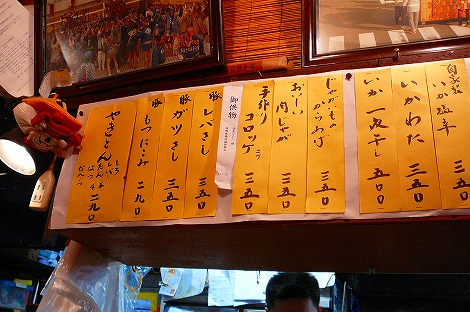 自家製
いか塩辛
四五〇
いかわた
四〇〇
いか一夜干し
五〇〇
じゃがもの
からあげ
三五〇
おーしい
肉じゃが
三五〇
手作り
コロッケ
二ツ
三五〇
御供物
豚 レバさし
三五〇
豚 ガツさし
三五〇
豚 もつにこみ
二九〇
やきとん
しろ
レバ
たん
はつ
なんこつ
二九〇